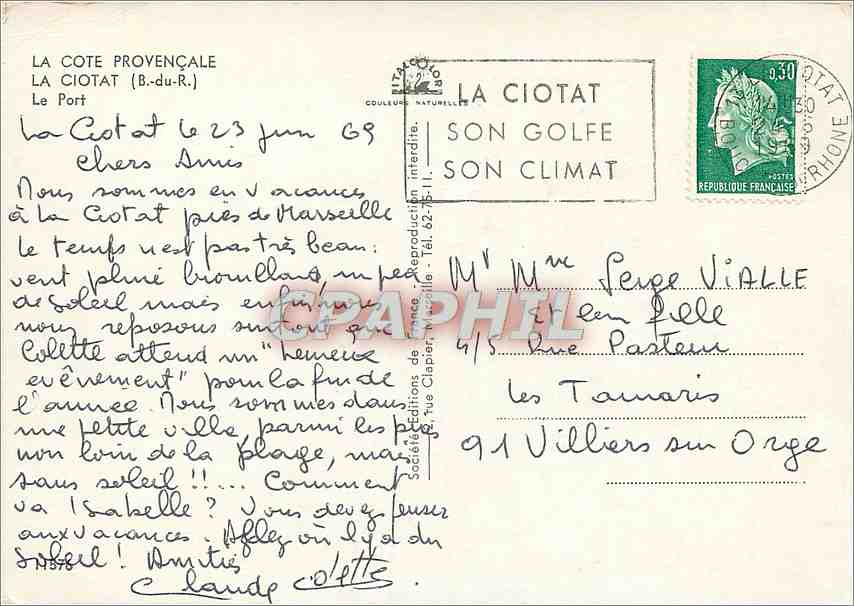 LA COTE PROVENÇALE
LA CIOTAT (B.-du-R.)
Le Port
ITALCOLOR
COULEURS NATURELLES
LA CIOTAT
SON GOLFE
SON CLIMAT
0,30
POSTES
REPUBLIQUE FRANÇAISE
CIOTAT
RHONE
14H30
La Ciotat le 23 juin 69
Chers Amis
Nous sommes en vacances
à la Ciotat près de Marseille
le temps n'est pas très beau :
vent pluie brouillard, un peu
de soleil mais enfin, nous
nous reposons surtout que
Colette attend un "heureux
evênement" pour la fin de
l'année. Nous sommes dans
une petite villa, parmi les pins
non loin de la plage, mais
sans soleil !!... Comment
va Isabelle ? Vous devez penser
aux vacances. Allez où il y a du
soleil ! Amitiés
Claude Colette.
11376
Société Editions de France. - Reproduction interdite.
2, rue Clapier, Marseille - Tél. 62-75-11.
CPAPHIL
Mr Mme Serge VIALLE
et leur fille
4/5 Rue Pasteur
les Tamaris
91 Villiers sur Orge